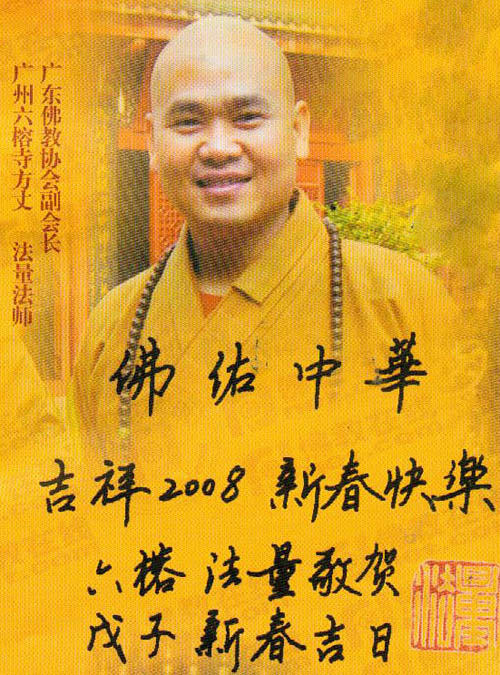 广东佛教协会副会长
广州六榕寺方丈 法量法师
佛佑中華
吉祥2008 新春快樂
六榕 法量敬贺
戊子新春吉日